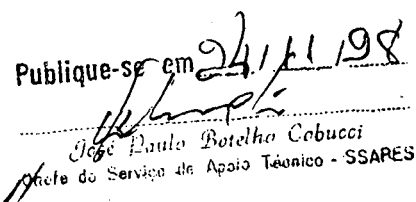 Publique-se em 24/11/98
José Paulo Botelho Cobucci
Chefe do Serviço de Apoio Técnico - SSARES